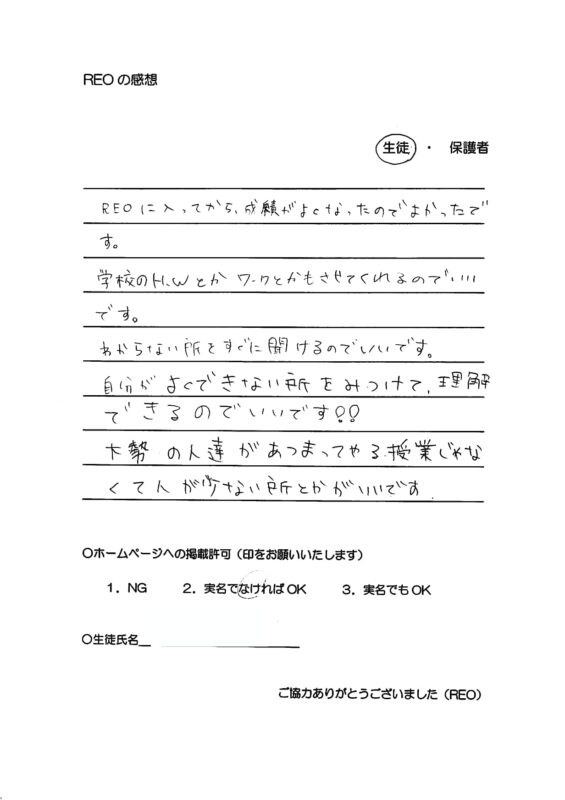 REOの感想
生徒 ・ 保護者
REOに入ってから、成績がよくなったのでよかったで
す。
学校のH.Wとか ワークとかもさせてくれるのでいい
です。
わからない所をすぐに聞けるのでいいです。
自分が よくできない所をみつけて、理解
できるのでいいです!!
大勢の人達があつまってやる授業じゃな
くて人が少ない所とかがいいです.
○ホームページへの掲載許可（印をお願いいたします）
1．NG 2．実名でなければOK 3．実名でもOK
○生徒氏名
ご協力ありがとうございました（REO）